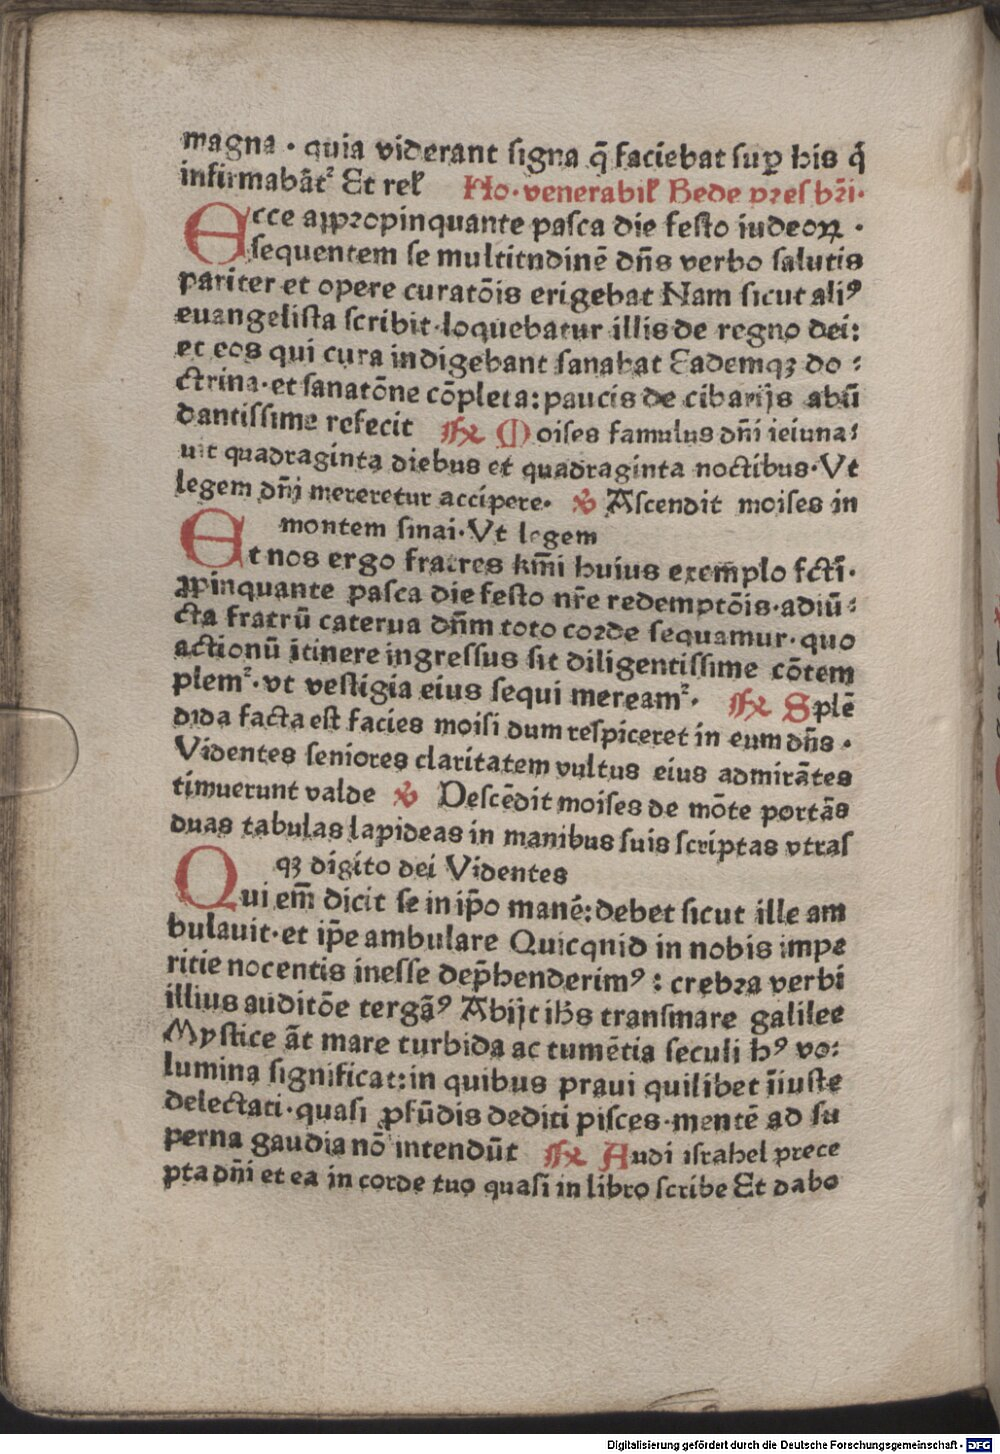 magna · quia viderant ſigna q̄ faciebat ſuꝑ his q̄
infirmabāt᷑ Et reł Ho·venerabił Bede preſbr̄i·
Ecce appropinquante paſca die feſto iudeoꝝ ·
ſequentem ſe multitndinē dn̄s verbo ſalutis
pariter et opere curatōis erigebat Nam ſicut aliꝰ
euangeliſta ſcribit·loquebatur illis de regno dei:
et eos qui cura indigebant ſanabat Eademqꝫ do⸗
ctrina·et ſanatōne cōpleta: paucis de cibarijs abū
dantiſſime refecit ℟ Moiſes famulus dn̄i ieiuna⸗
uit quadraginta diebus et quadraginta noctibus·Vt
legem dn̄i mereretur accipere· ℣ Aſcendit moiſes in
montem ſinai·Vt legem
Et nos ergo fratres km̄i huius exem̄plo fcti᷑·
ꝓpinquante paſca die feſto nr̄e redemptōis·adiū⸗
cta fratrū caterua dn̄m toto corde ſequamur·quo
actionū itinere ingreſſus ſit diligentiſſime cōtem
plem᷑·vt veſtigia eius ſequi meream᷑· ℟ Splē
dida facta eſt facies moiſi dum reſpiceret in eum dn̄s ·
Videntes ſeniores claritatem vultus eius admirātes
timuerunt valde ℣ Deſcēdit moiſes de mōte portās
duas tabulas lapideas in manibus ſuis ſcriptas vtraſ
qꝫ digito dei Videntes
Qui em̄ dicit ſe in ip̄o manē: debet ſicut ille am
bulauit·et ip̄e ambulare Quicqnid in nobis impe
ritie nocentis ineſſe dep̄henderimꝰ : crebra verbi
illius auditōe tergāꝰ Abijt ih̄s tranſmare galilee
Myſtice āt mare turbida ac tumētia ſeculi hꝰ vo⸗
lumina ſignificat: in quibus praui quilibet īiuſte
delectati·quaſi ꝓfūdis dediti piſces·mentē ad ſu
perna gaudia nō intendūt ℟ Audi iſrahel prece
pta dn̄i et ea in corde tuo quaſi in libro ſcribe Et dabo
Digitalisierung gefördert durch die Deutsche Forschungsgemeinschaft - DFG